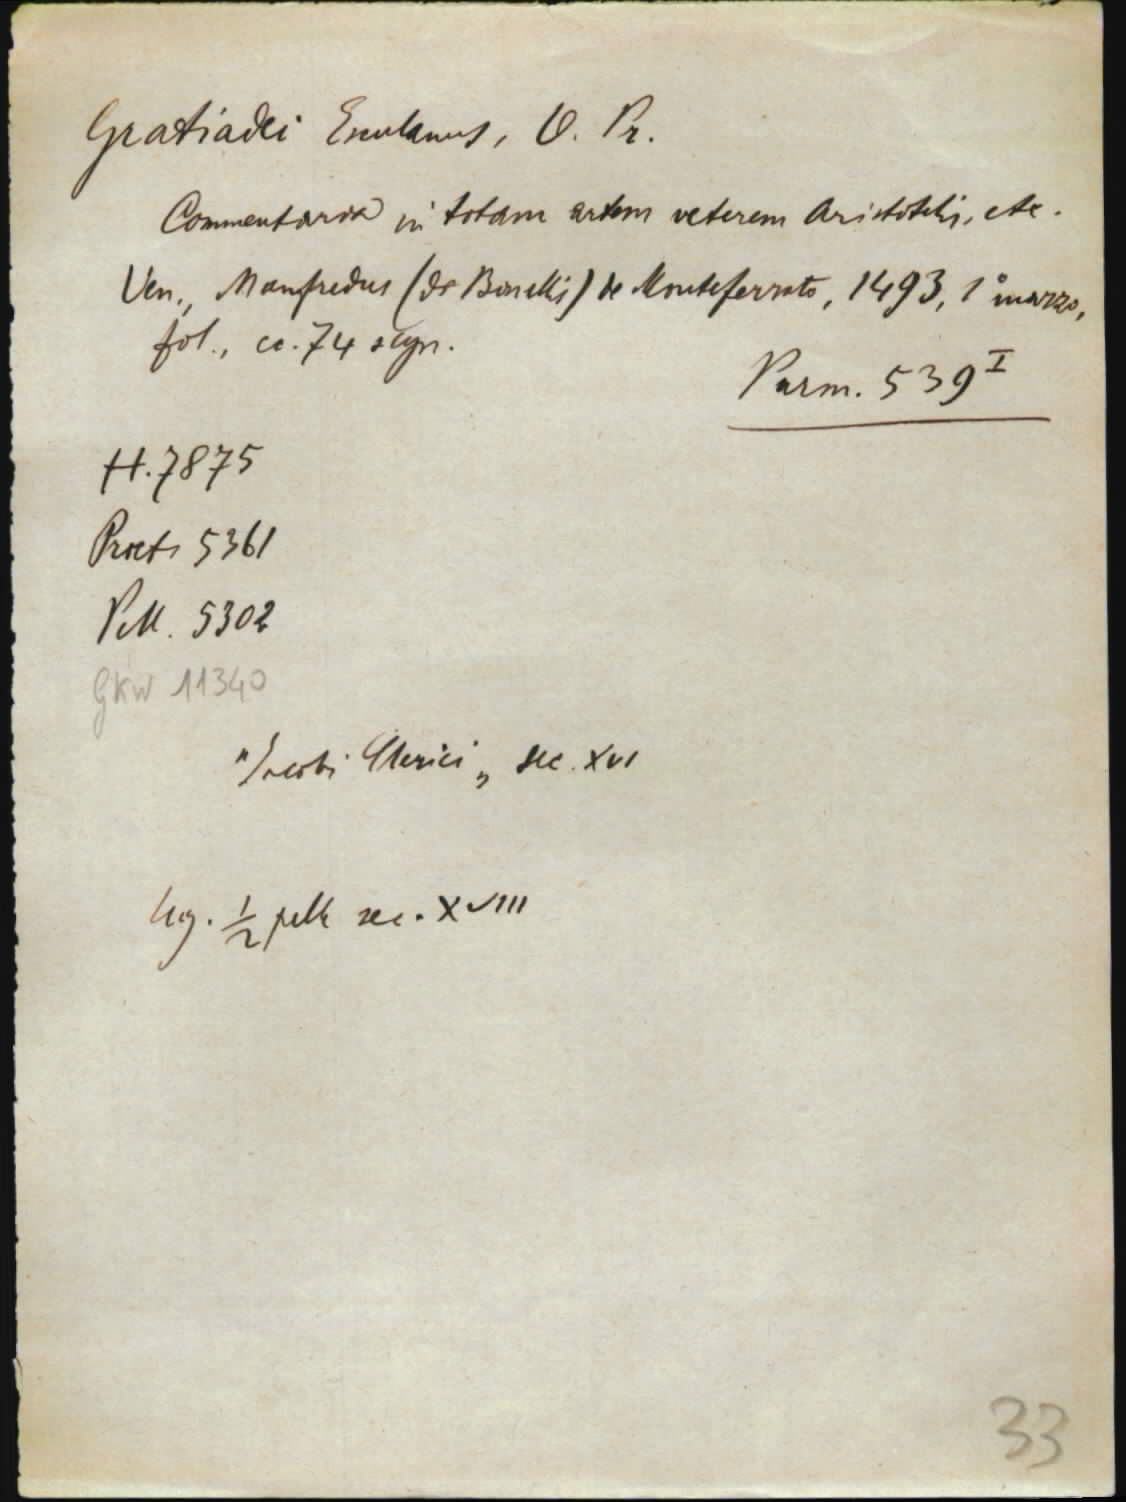 Gratiadei Esculanus, O. Pr.
Commentaria in totam artem veterem Aristotelis, etc.
Ven., Manfredus (de Bonellis) de Monteferrato, 1493, 1° marzo,
fol., cc. 74 segn.
Parm. 539 I
H. 7875
Proctor 5361
Pell. 5302
GKW 11340
"Jacobi Clerici„ sec. XVI
Leg. 1/2 pelle sec. XVIII
33